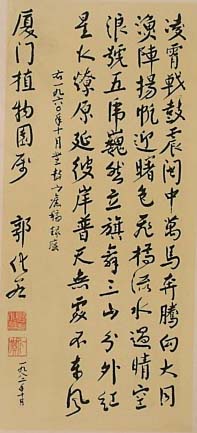 凌霄戰鼓震閩中萬馬奔騰向大同
漁陣揚帆迎曙色飛橋流水過晴空
浪號五虎巍然立旗舞三山分外紅
星火燎原延彼岸普天無處不東風
右一九六〇年十月登鼓山舊稿録應
厦门植物园属 郭化若
一九八二年十月